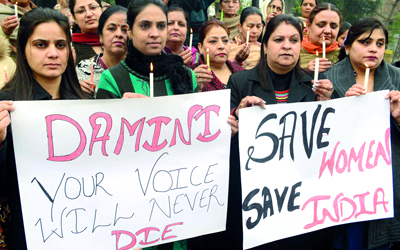 DAMINI
YOUR VOICE
WILL NEVER
DIE
SAVE
WOMEN
SAVE
INDIA